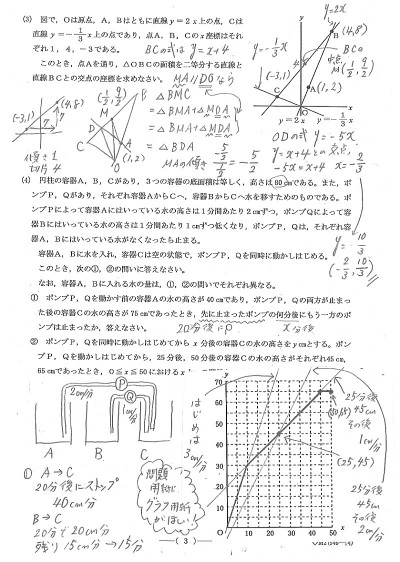 (3) 図で，Oは原点，A，Bはともに直線y＝2x上の点，Cは
直線y＝－1/3x上の点であり，点A，B，Cのx座標はそれ
ぞれ1，4，－3である。
BCの式は y=x+4
このとき，点Aを通り，△OBCの面積を二等分する直線と
直線BCとの交点の座標を求めなさい。 MA//DOなら
△BMC
=△BMA+△MCA
=△BMA+△MDA
=△BDA
MAの傾き
(-3,1)
(4,8)
7
7
傾き1
切片4
(1/2, 9/2)
B
M
D
C
A
O
(1,2)
y=2x
(4,8)
y
B
BCの中点
M(1/2, 9/2)
y=-1/3x
(-3,1)
A(1,2)
C
O
x
y＝2x
y＝－1/3x
ODの式 y=-5x
y=x+4との交点
-5x=x+4 x=-2/3
y=10/3
(-2/3, 10/3)
(4) 円柱の容器A，B，Cがあり，3つの容器の底面積は等しく，高さは80cmである。また，ポ
ンプP，Qがあり，それぞれ容器AからCへ，容器BからCへ水を移すためのものである。ポ
ンプPによって容器Aにはいっている水の高さは1分間あたり2cmずつ，ポンプQによって容
器Bにはいっている水の高さは1分間あたり1cmずつ低くなり，ポンプP，Qは，それぞれ容
器A，Bにはいっている水がなくなったら止まる。
容器A，Bに水を入れ，容器Cは空の状態で，ポンプP，Qを同時に動かしはじめる。
このとき，次の①，②の問いに答えなさい。
なお，容器A，Bに入れる水の量は，①，②の問いでそれぞれ異なる。
① ポンプP，Qを動かす前の容器Aの水の高さが40cmであり，ポンプP，Qの両方が止まっ
た後の容器Cの水の高さが75cmであったとき，先に止まったポンプの何分後にもう一方のポ
ンプは止まったか，答えなさい。 20分後にP
② ポンプP，Qを同時に動かしはじめてからx分後の容器Cの水の高さをycmとする。ポン
プP，Qを動かしはじめてから，25分後，50分後の容器Cの水の高さがそれぞれ45cm，
65cmであったとき，0≦x≦50における
P
2cm/分
Q
1cm/分
A B C
はじめは
3cm/分
y
70
60
50
40
30
20
10
O
10 20 30 40 50 x
(50,65)
(25,45)
25分後
45cm
その後
1cm/分
25分後
45cm
その後
2cm/分
① A→C
20分後にストップ
40cm分
B→C
20分で20cm分
残り15cm分→15分
問題
用紙に
グラフ用紙
がほしい
―（ 3 ）―